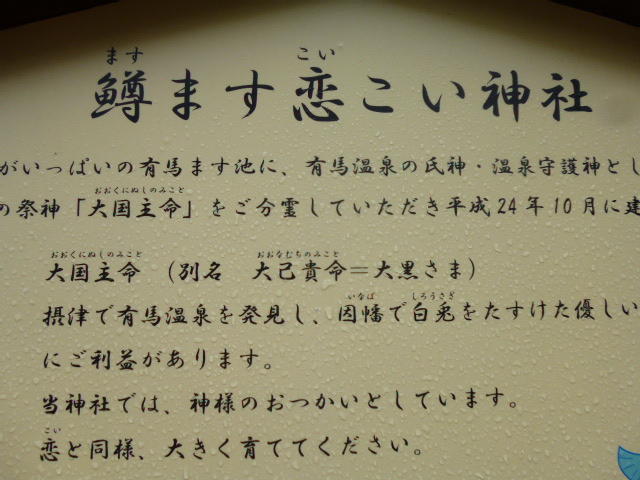 ます こい
鱒ます恋こい神社
がいっぱいの有馬ます池に、有馬温泉の氏神・温泉守護神とし
おおくにぬしのみこと
の祭神「大国主命」をご分霊していただき平成24年10月に建
おおくにぬしのみこと おおなむちのみこと
大国主命 (別名 大己貴命=大黒さま)
いなば しろうさぎ
摂津で有馬温泉を発見し、因幡で白兎をたすけた優しい
にご利益があります。
当神社では、神様のおつかいとしています。
こい
恋と同様、大きく育ててください。